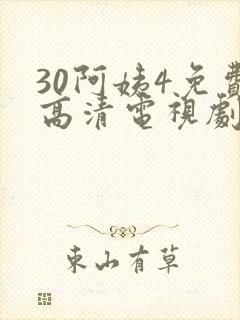 30阿姨4免費
高清電視劇
東山有草